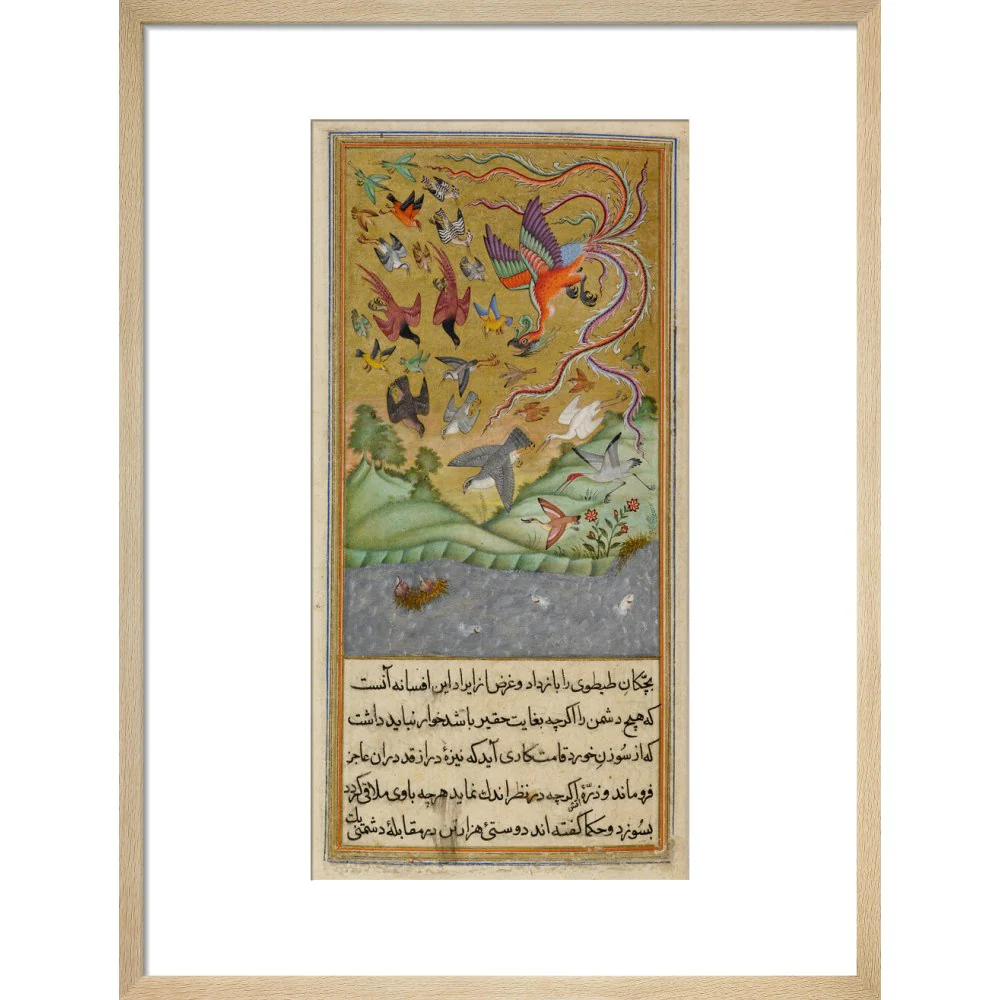 بچکان طیطوی را بازداد و غرض از ایراد این افسانه آنست
که هیچ دشمن را اکرچه بغایت حقیر باشد خوار نباید داشت
که از سوزن خورد قامت کاری آید که نیزهٔ دراز قد دران عاجز
فروماند و ذرّهٔ آتش اکرچه در نظر اندك نماید هرچه باوی ملاقی کردد
بسوزد و حکما کفته اند دوستیٔ هزار تن در مقابلهٔ دشمنی یك